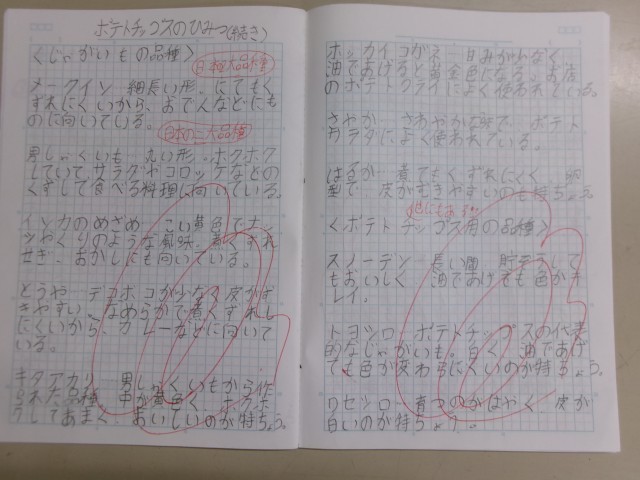 ポテトチップスのひみつ(続き)
〈じゃがいもの品種〉
日本の二大品種
メークイン 細長い形。にてもく
ずれにくいから、おでんなどにも
のに向いている。
日本の二大品種
男しゃくいも 丸い形。ホクホク
していて、サラダやコロッケなどの
くずして食べる料理に向いている。
インカのめざめ こい黄色でナッ
ツやくりのような風味。煮くずれ
せず、おかしにも向いている。
とうや デコボコが少なく皮がむ
きやすい。なめらかで煮くずれし
にくいから、カレーなどに向いて
いる。
キタアカリ 男しゃくいもから作
られた品種。中が黄色く、ホクホ
クしてあまく、おいしいのが特ちょう。
ホッカイコガネ 甘みが少なく、
油であげると黄金色になる。お店
のポテトフライによく使われている。
さやか さわやかな味で、ポテト
サラダによく使われている。
はるか 煮てもくずれにくく、
型で、皮がむきやすいのも特ちょう。
他にもあるよ
〈ポテトチップス用の品種〉
スノーデン 長い間、貯ぞうして
もおいしく、油であげても色がキ
レイ。
トヨシロ ポテトチップスの代表
的なじゃがいも。白く、油であげ
ても色が変わらにくいのが特ちょう。
ワセシロ 育つのがはやく、皮が
白いのが特ちょう。